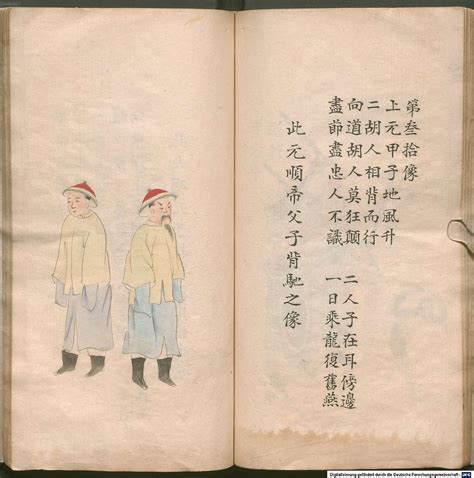 第叁拾像
上元甲子地風升
二胡人相背而行
向道胡人莫狂顛 二人子在耳傍邊
盡節盡忠人不識 一日乘龍復舊燕
此元順帝父子背馳之像
Digitalisierung gefördert durch die Deutsche Forschungsgemeinschaft